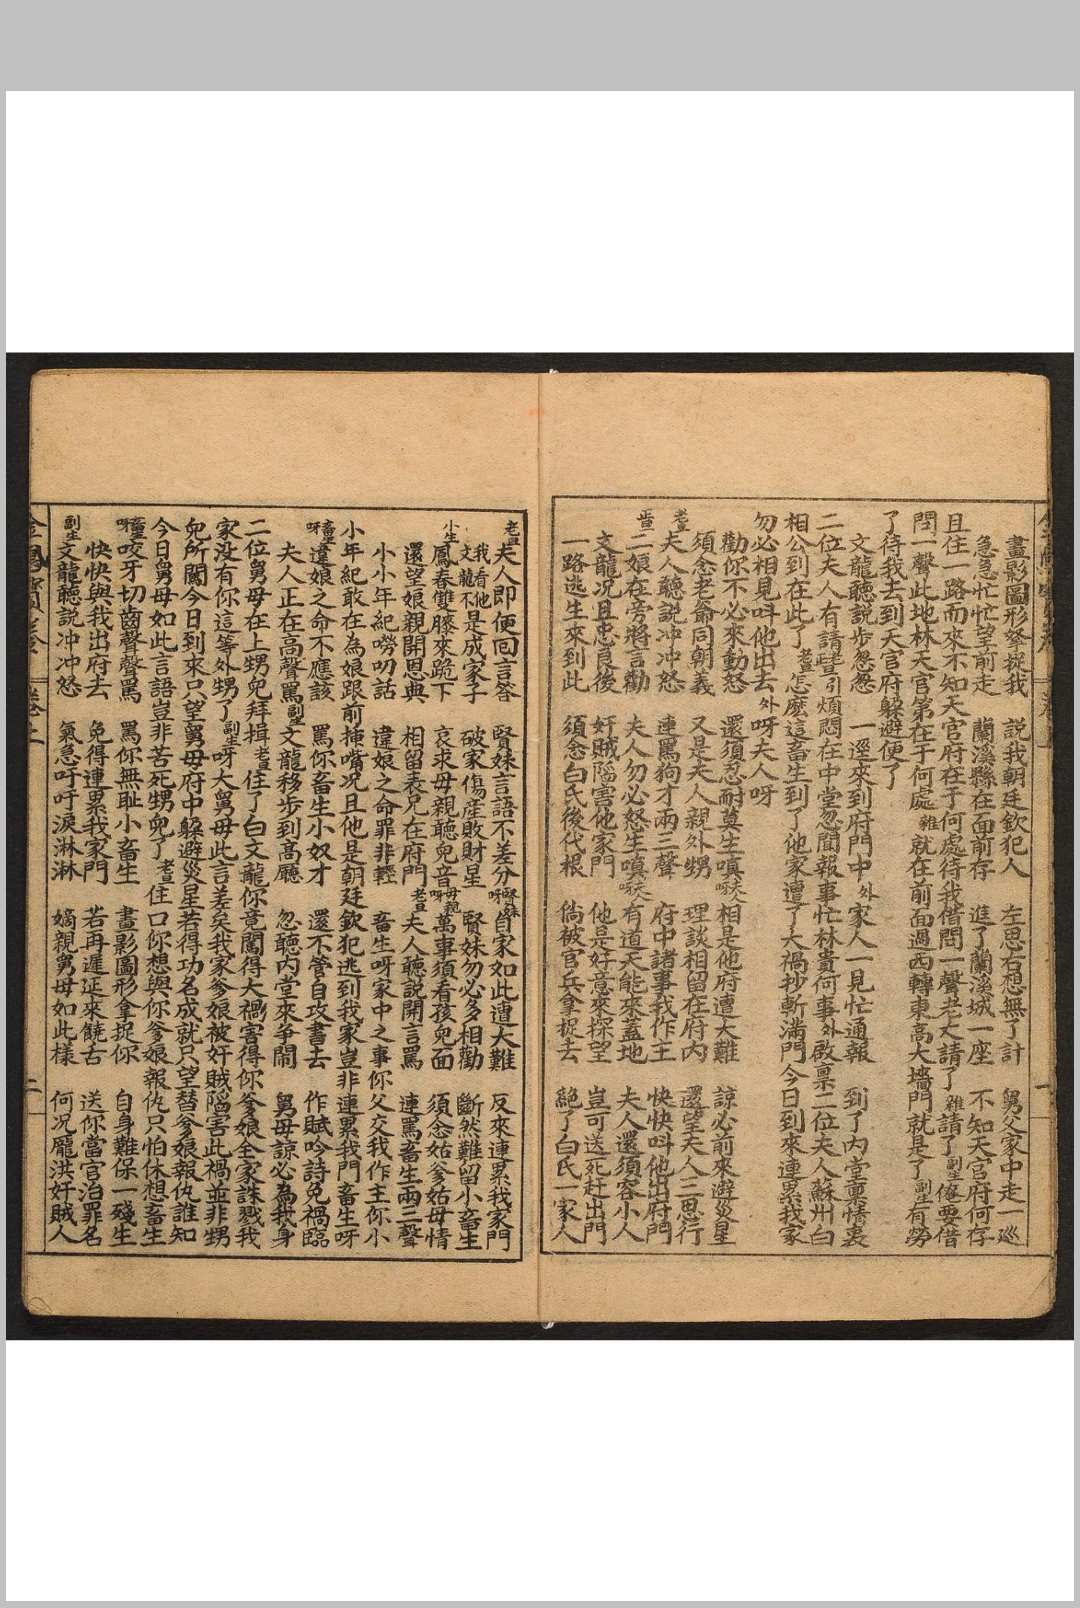 畫影圖形拏捉我　說我朝廷欽犯人　左思右想無了計　舅父家中走一巡
急急忙忙望前走　蘭溪縣在面前存　進了蘭溪城一座　不知天官府何存
且住一路而來不知天官府在于何處待我借問一聲老丈請了雜請了副生俺要借
問一聲此地林天官第在于何處雜就在前面過西轉東高大墻門就是了副生有勞
了待我去到天官府躲避便了
文龍聽說步怱怱　一逕來到府門中外家人一見忙通報　到了內堂稟情衷
二位夫人有請老旦引煩悶在中堂忽聞報事忙林貴何事外啟稟二位夫人蘇州白
相公到在此了老旦怎麼這畜生到了他家遭了大禍抄斬滿門今日到來連累我家
勿必相見叫他出去外呀夫人呀
勸你不必來動怒　還須忍耐莫生嗔夫人呀相是他府遭大難　諒必前來避災星
須念老爺同朝義　又是夫人親外甥　理談相留在府內　還望夫人三思行
老旦夫人聽說冲冲怒　連罵狗才兩三聲　府中諸事我作主　快快叫他出府門
正旦二娘在旁將言勸　夫人勿必怒生嗔夫人呀有道天能來蓋地　夫人還須容小人
文龍况且忠良後　奸賊陷害他家門　他是好意來探望　豈可送死赶出門
一路逃生來到此　須念白氏後代根　倘被官兵拿捉去　絕了白氏一家人
老旦夫人即便囘言答　賢妹言語不差分賢妹呀自家如此遭大難　反來連累我家門
我看他文龍不是成家子　破家傷産敗財星　賢妹勿必多相勸　斷然難留小畜生
小生鳳春雙膝來跪下　哀求母親聽兒音母親呀萬事須看孩兒面　須念姑爹姑母情
還望娘親開恩典　相留表兄在府門老旦夫人聽說開言罵　連罵畜生兩三聲
小小年紀嘮叨話　違娘之命罪非輕　畜生呀家中之事你父交我作主你小
小年紀敢在為娘跟前掩嘴况且他是朝廷欽犯逃到我家豈非連累我門畜生呀
畜生呀違娘之命不應該　罵你畜生小奴才　還不管自攻書去　作賦吟詩免禍臨
夫人正在高聲罵副生文龍移步到高廳　忽聽內堂來爭鬧　舅母諒必為我身
二位舅母在上甥兒拜揖老旦住了白文龍你竟闖得大禍害得你爹娘全家誅戮我
家没有你這等外甥了副生呀大舅母此言差矣我家爹娘被奸賊陷害此禍並非甥
兒所闖今日到來只望舅母府中躲避災星若得功名成就只望替爹娘報仇誰知
今日舅母如此言語豈非苦死甥兒了老旦住口你想與你爹娘報仇只怕休想畜生
畜生呀咬牙切齒聲聲罵　罵你無耻小畜生　畫影圖形拿捉你　自身難保一殘生
快快與我出府去　免得連累我家門　若再遲延來饒舌　送你當官治罪名
副生文龍聽說冲冲怒　氣急吁吁淚淋淋　嫡親舅母如此樣　何况龐洪奸賊人